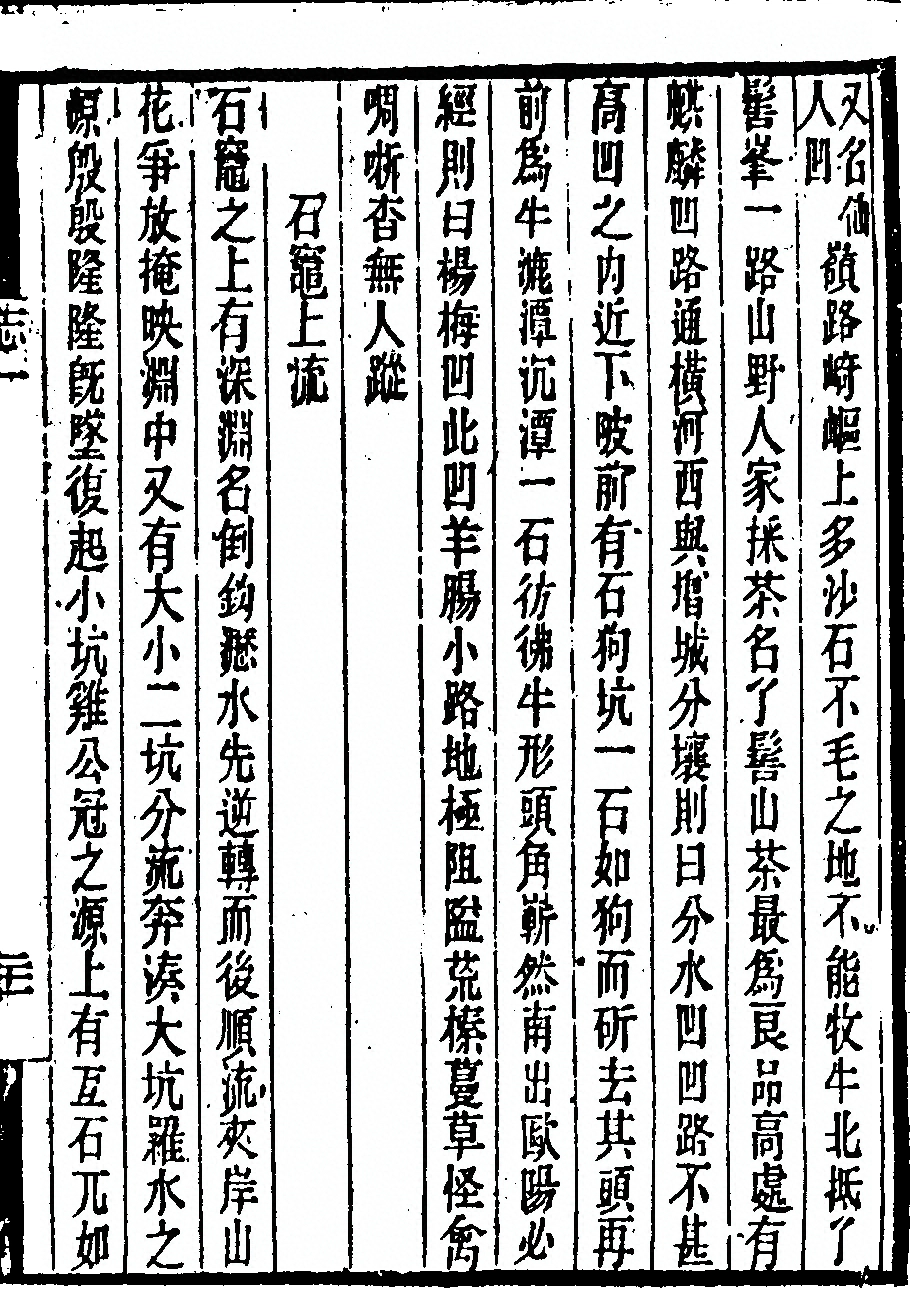 又名仙人凹嶺路﨑嶇上多沙石不毛之地不能牧牛北抵了
髻峯一路山野人家採茶名了髻山茶最爲良品高處有
麒麟凹路通橫河西與增城分壤則曰分水凹凹路不甚
高凹之内近下陂前有石狗坑一石如狗而斫去其頭再
前爲牛漉潭沉潭一石彷彿牛形頭角嶄然南出歐陽必
經則曰楊梅凹此凹羊腸小路地極阻隘荒榛蔓草怪禽
啁哳杳無人蹤
石竈上流
石竈之上有深淵名倒鈎潖水先逆轉而後順流夾岸山
花爭放掩映淵中又有大小二坑分流奔湊大坑羅水之
源殷殷隆隆旣墜復起小坑雞公冠之源上有互石兀如
志一
二十